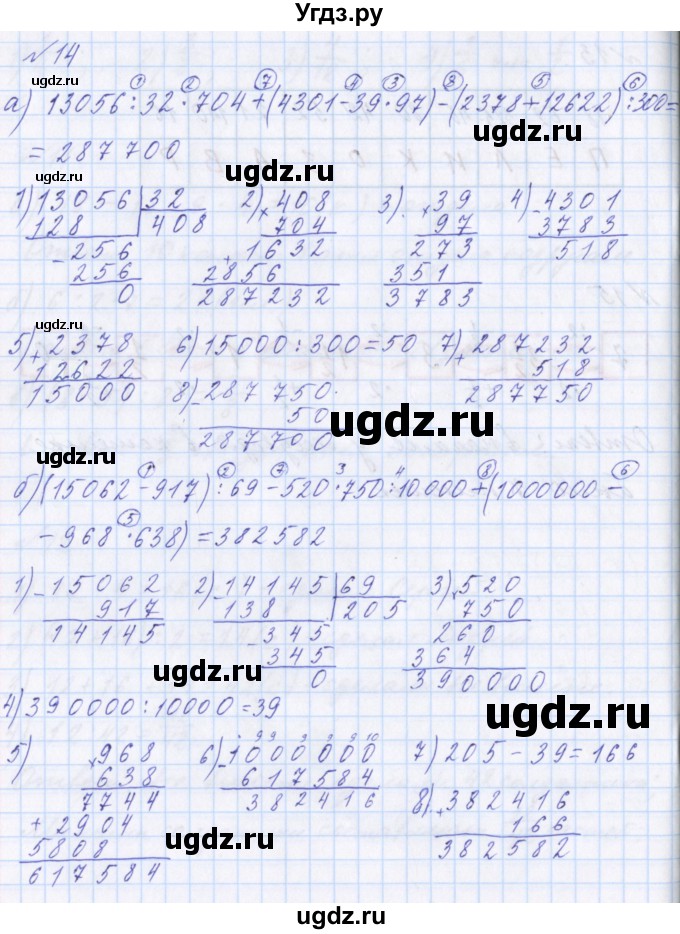 Угдз.ру
№ 14
а) 13056 : 32 · 704 + (4301 - 39 · 97) - (2378 + 12622) : 300 =
① ② ⑦ ④ ③ ⑧ ⑤ ⑥
= 287700
1) 13056 | 32
128 | 408
- 256
256
0
2) × 408
704
+ 1632
2856
287232
3) × 39
97
273
351
3783
4) - 4301
3783
518
5) + 2378
12622
15000
6) 15000 : 300 = 50
7) + 287232
518
287750
8) - 287750
50
287700
б) (15062 - 917) : 69 - 520 · 750 : 10000 + (1000000 -
① ② ⑦ 3 4 ⑧ ⑥
- 968 · 638) = 382582
⑤
1) - 15062
917
14145
2) - 14145 | 69
138 | 205
- 345
345
0
3) × 520
750
260
364
390000
4) 390000 : 10000 = 39
5) × 968
638
7744
+ 2904
5808
617584
6) - 1000000
617584
382416
7) 205 - 39 = 166
8) + 382416
166
382582
ugdz.ru
ugdz.ru
ugdz.ru
ugdz.ru
ugdz.ru
ugdz.ru
ugdz.ru
ugdz.ru
ugdz.ru
ugdz.ru
ugdz.ru
ugdz.ru
ugdz.ru
ugdz.ru